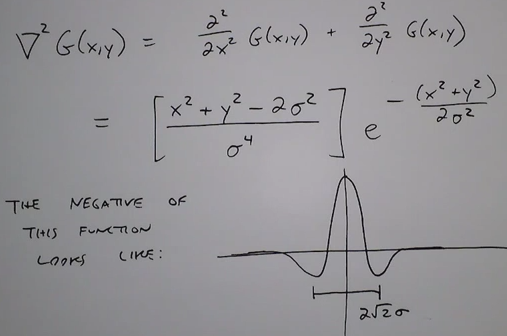 ∇² G(x,y) = ∂²/∂x² G(x,y) + ∂²/∂y² G(x,y)
= [ (x² + y² - 2σ²) / σ⁴ ] e^(-(x² + y²) / 2σ²)
THE NEGATIVE OF
THIS FUNCTION
LOOKS LIKE:
2√2σ